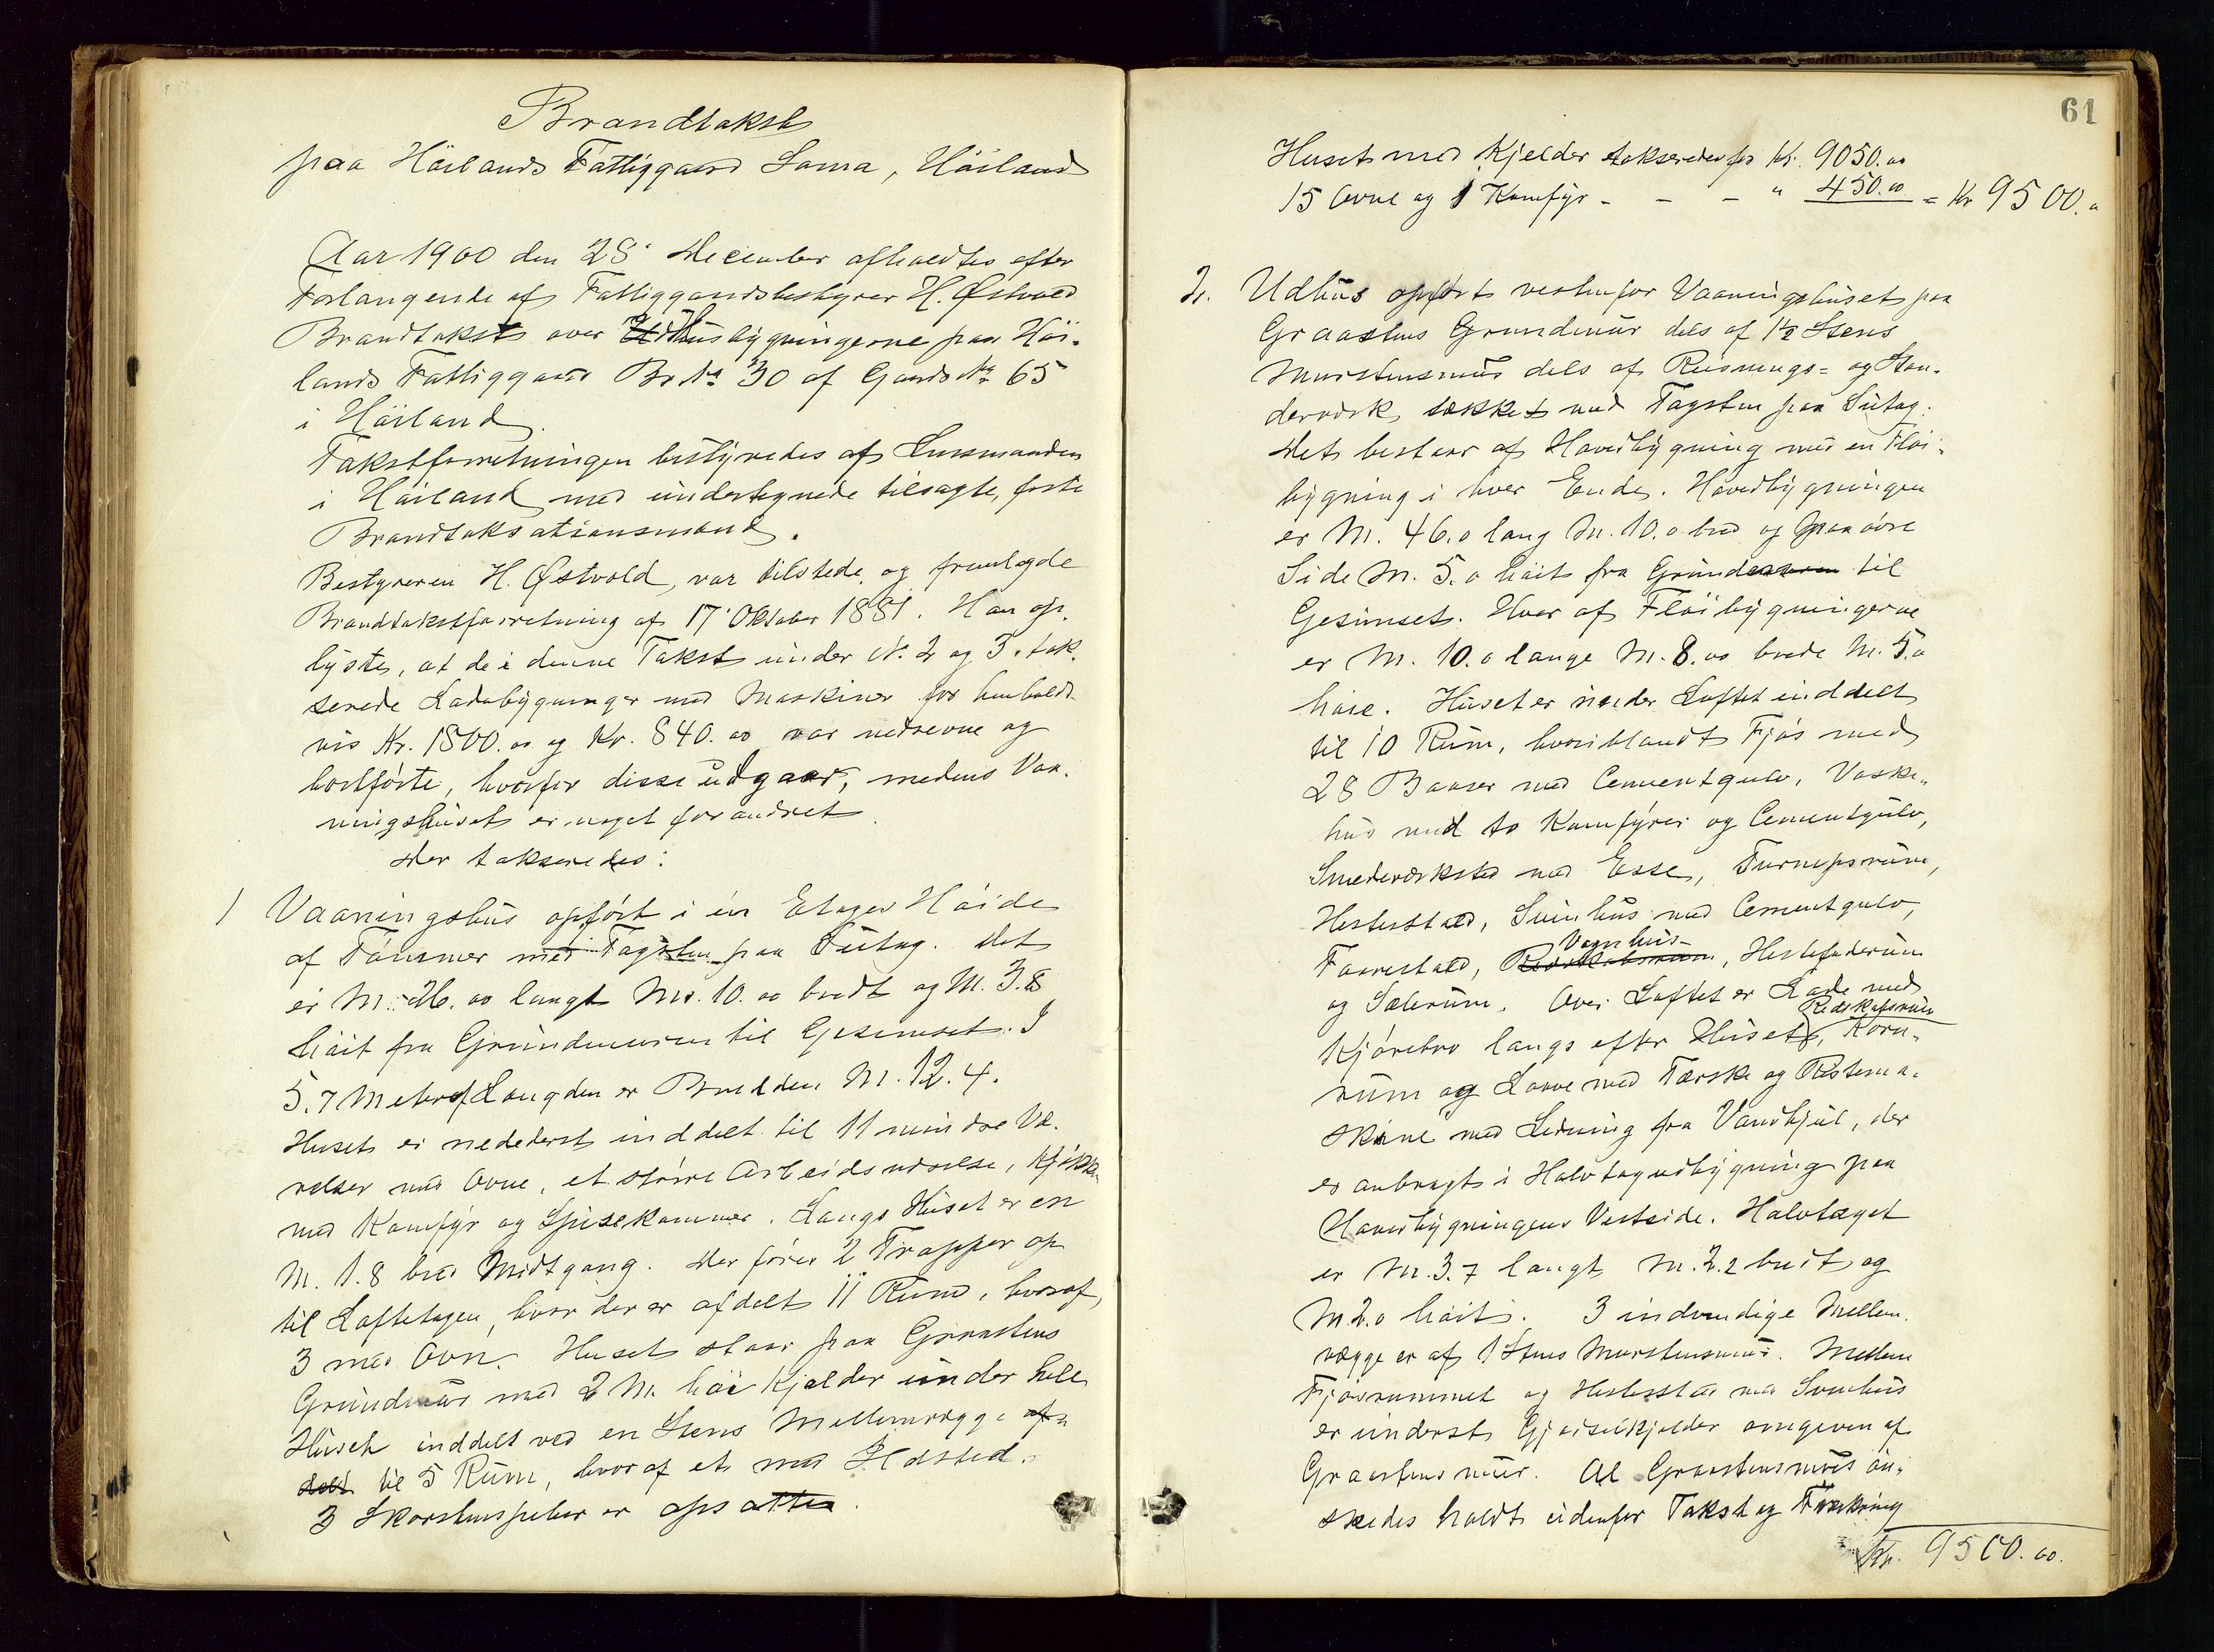 Brandtakst
paa Höilands Fattiggaard Soma, Höiland
Aar 1900 den 28' December afholdtes efter
Forlangende af Fattiggaardsbestyrer H. Østvold
Brandtakst over Husbygningerne paa Höi-
lands Fattiggaard Br. No 30 af Gaards No 65
i Höiland.
Takstforretningen bestyredes af Lensmanden
i Höiland med undertegnede tilsagte, faste
Brandtaksationsmænd.
Bestyreren H. Østvold, var tilstede og fremlagde
Brandtakstforretning af 17' Oktober 1881. Han op-
lyste, at de i denne Takst under N. 2 og 3. tak-
serede Ladebygninger med Maskiner for henholds-
vis Kr. 1800.00 og Kr. 840.00 var nedrevne og
bortförte, hvorfor disse udgaar, medens Vaa-
ningshuset er noget forandret.
Der takseredes:
1 Vaaningshus opfört i én Etages Höide
af Tömmer med Tagsten paa Sutag. Det
er M. 26.00 langt M. 10.00 bredt og M. 3.8
höit fra Grundmuren til Gesimset. I
5.7 Meter af Længden er Bredden M. 12.4.
Huset er nederst inddelt til 11 mindre Væ-
relser med Ovne, et större Arbeidsværelse, Kjökken
med Komfyr og Spisekammer. Langs Huset er en
M. 1.8 bred Midtgang. Der förer 2 Trapper op
til Loftetagen, hvor der er afdelt 11 Rum, hvoraf
3 med Ovn. Huset staar paa Graastens
Grundmur med 2 M. höi Kjelder under hele
Huset inddelt ved en Stens Mellemvægge af-
delt til 5 Rum, hvoraf et med Ildsted.
3 Skorstenspiber er opsatte.
61
Huset med Kjelder takseredes for Kr. 9050.00
15 Ovne og 1 Komfyr - - - " 450.00 = Kr 9500.00
2. Udhus opfört vestenfor Vaaningshuset paa
Graastens Grundmur dels af 1½ Stens
Murstensmur dels af Reisnings- og Stan-
derværk, tækket med Tagsten paa Sutag.
Det bestaar af Hovedbygning med en Flöi-
bygning i hver Ende. Hovedbygningen
er M. 46.0 lang M. 10.0 bred og paa övre
Side M. 5.0 höit fra Grunden til
Gesimset. Hver af Flöibygningerne
er M. 10.0 lange M. 8.00 brede M. 5.0
höie. Huset er under Loftet inddelt
til 10 Rum, hvoriblandt Fjös med
28 Baaser med Cementgulv, Vaske-
hus med to Komfyrer og Cementgulv,
Smedeværksted med Esse, Turnipsrum,
Hestestald, Svinhus med Cementgulv,
Faarestald, Vognhus, Hestefoderrum
og Sælerum. Over Loftet er Lade med
Kjörebro langs efter Huset, Redskabsrum, Korn-
rum og Laave med Tærske og Ristema-
skine med Ledning fra Vandhjul, der
er anbragt i Halvtagudbygning paa
Hovedbygningens Vestside. Halvtaget
er M. 3.7 langt M. 2.2 bredt og
M. 2.0 höit. 3 indvendige Mellem-
vægge er af 1 Stens Murstensmur. Mellem
Fjösrummet og Hestestald med Svinhus
er underst Gjödselkjelder omgiven af
Graastensmur. Al Graastensmur ön-
skedes holdt udenfor Takst og Forsikring
Kr. 9500.00.